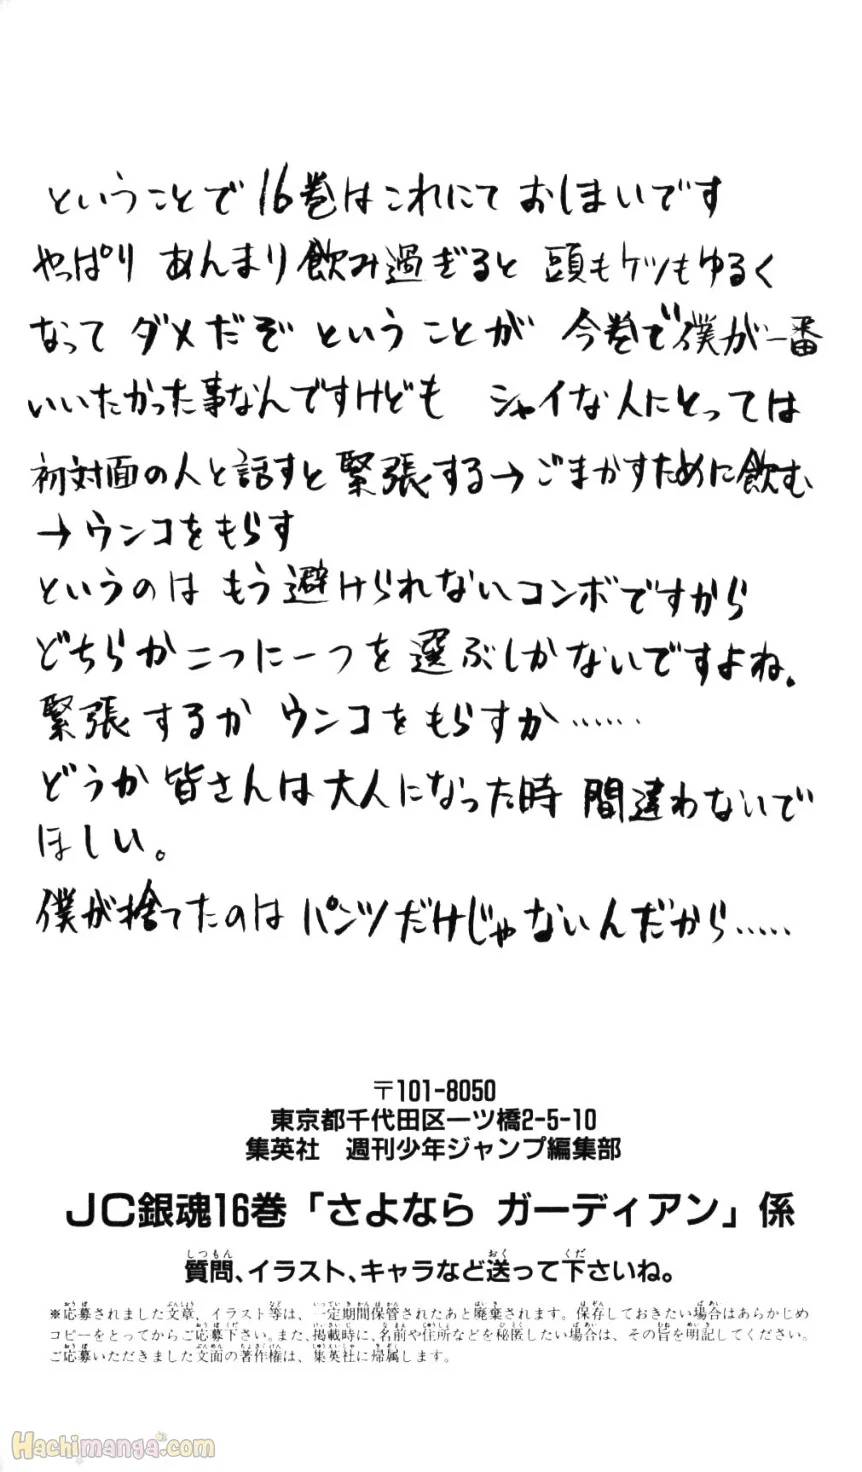 ということで 16巻はこれにて おしまいです
やっぱり あんまり飲み過ぎると 頭もケツもゆるく
なって ダメだぞ ということが 今巻で僕が一番
いいたかった事なんですけども シャイな人にとっては
初対面の人と話すと緊張する→ごまかすために飲む
→ウンコをもらす
というのは もう避けられないコンボですから
どちらか二つに一つを選ぶしかないですよね。
緊張するか ウンコをもらすか……
どうか皆さんは大人になった時 間違わないで
ほしい。
僕が捨てたのは パンツだけじゃないんだから……
〒101-8050
東京都千代田区一ツ橋2-5-10
集英社 週刊少年ジャンプ編集部
JC銀魂16巻「さよなら ガーディアン」係
質問、イラスト、キャラなど送って下さいね。
※応募されました文章、イラスト等は、一定期間保管されたあと廃棄されます。保存しておきたい場合はあらかじめ
コピーをとってからご応募下さい。また、掲載時に、名前や住所などを秘匿したい場合は、その旨を明記してください。
ご応募いただきました文面の著作権は、集英社に帰属します。
Hachimanga.com